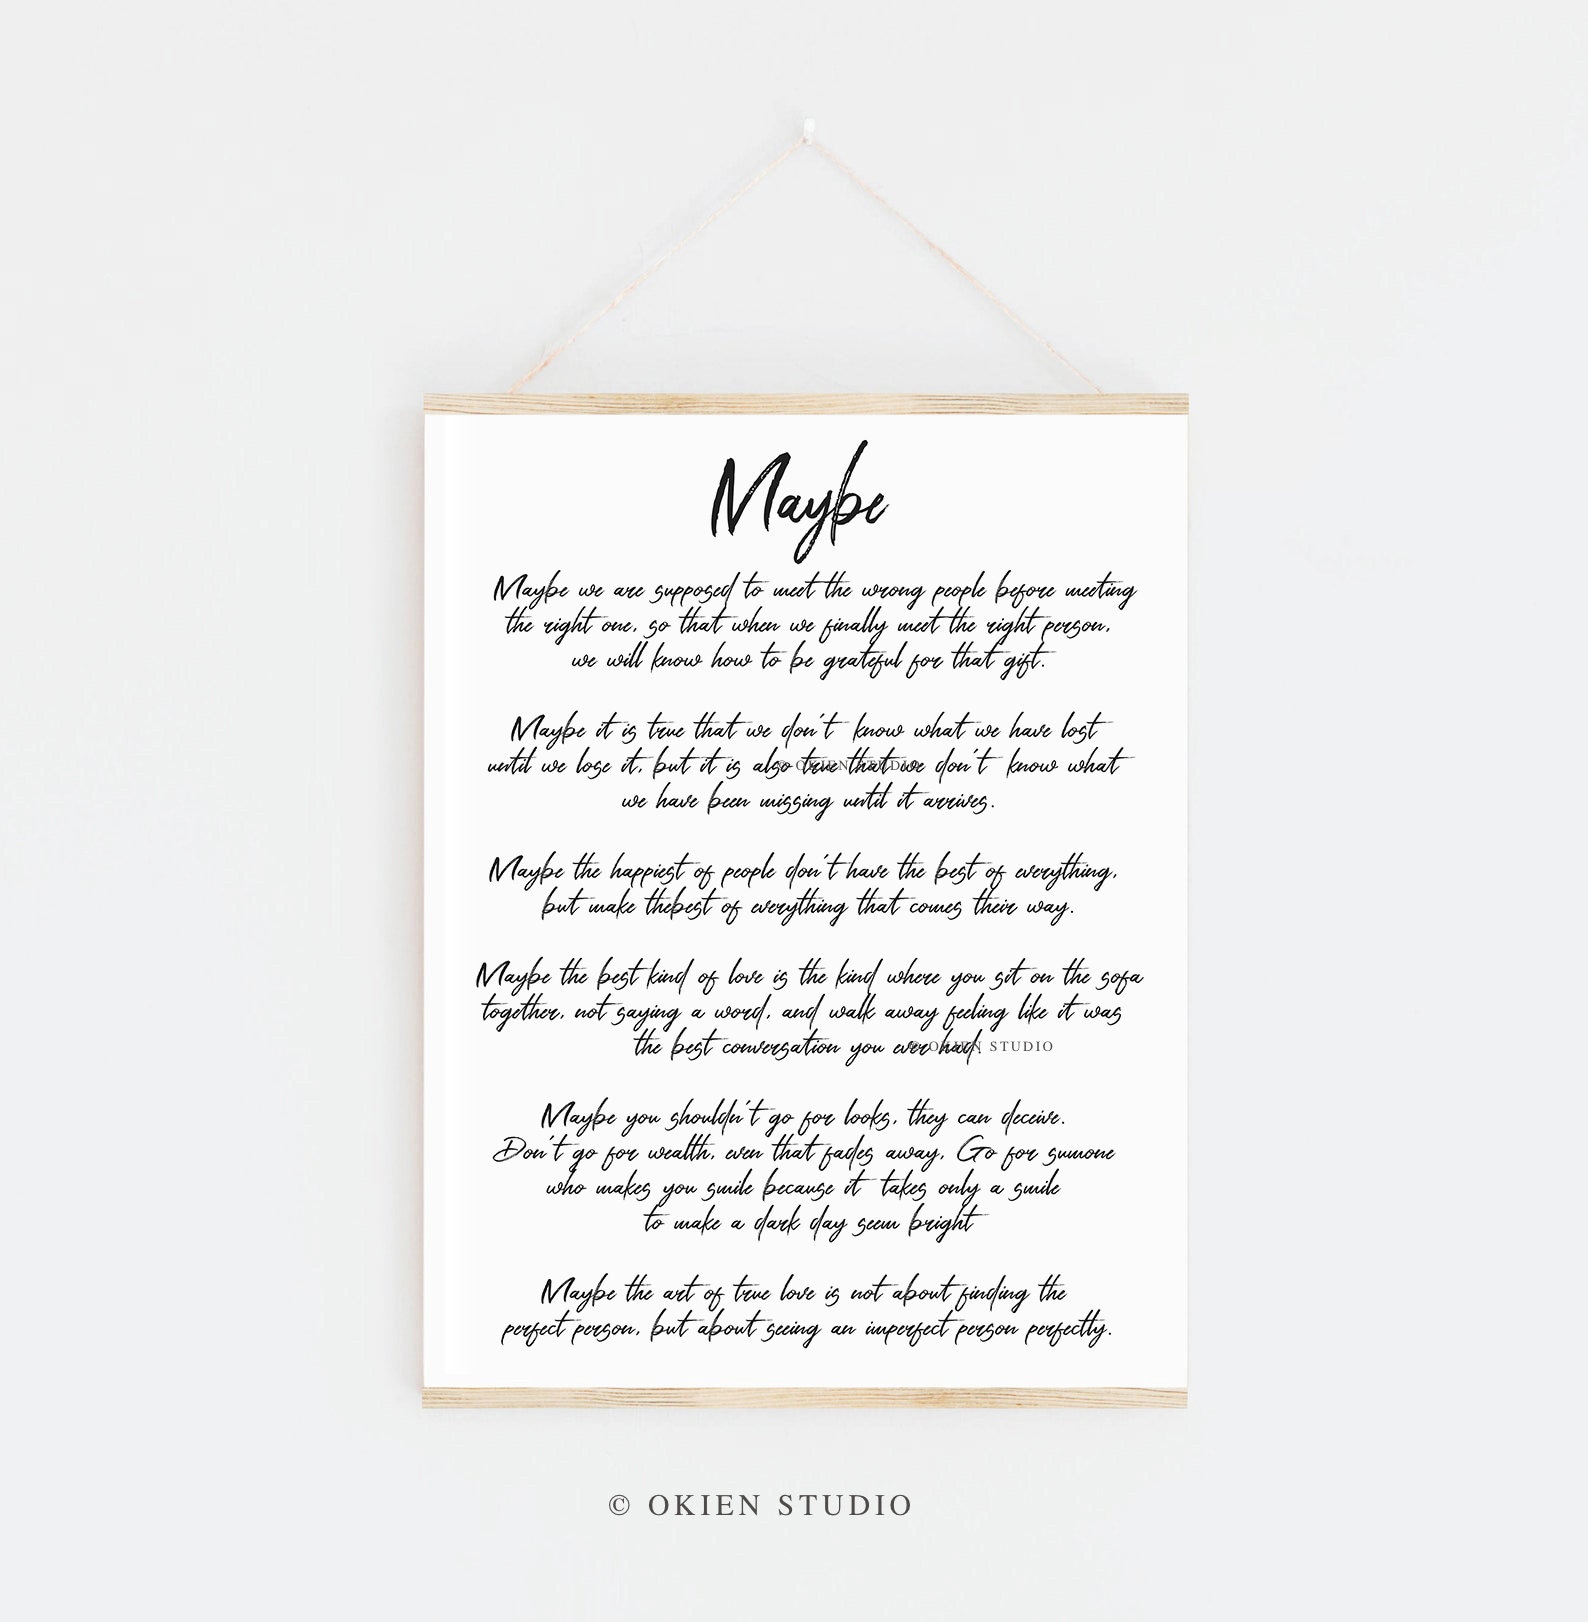 Maybe
Maybe we are supposed to meet the wrong people before meeting
the right one, so that when we finally meet the right person,
we will know how to be grateful for that gift.
Maybe it is true that we don't know what we have lost
until we lose it, but it is also true that we don't know what
© OKIEN STUDIO
we have been missing until it arrives.
Maybe the happiest of people don't have the best of everything,
but make thebest of everything that comes their way.
Maybe the best kind of love is the kind where you sit on the sofa
together, not saying a word, and walk away feeling like it was
the best conversation you ever had.
© OKIEN STUDIO
Maybe you shouldn't go for looks, they can deceive.
Don't go for wealth, even that fades away, Go for sumone
who makes you smile because it takes only a smile
to make a dark day seem bright
Maybe the art of true love is not about finding the
perfect person, but about seeing an imperfect person perfectly.
© OKIEN STUDIO